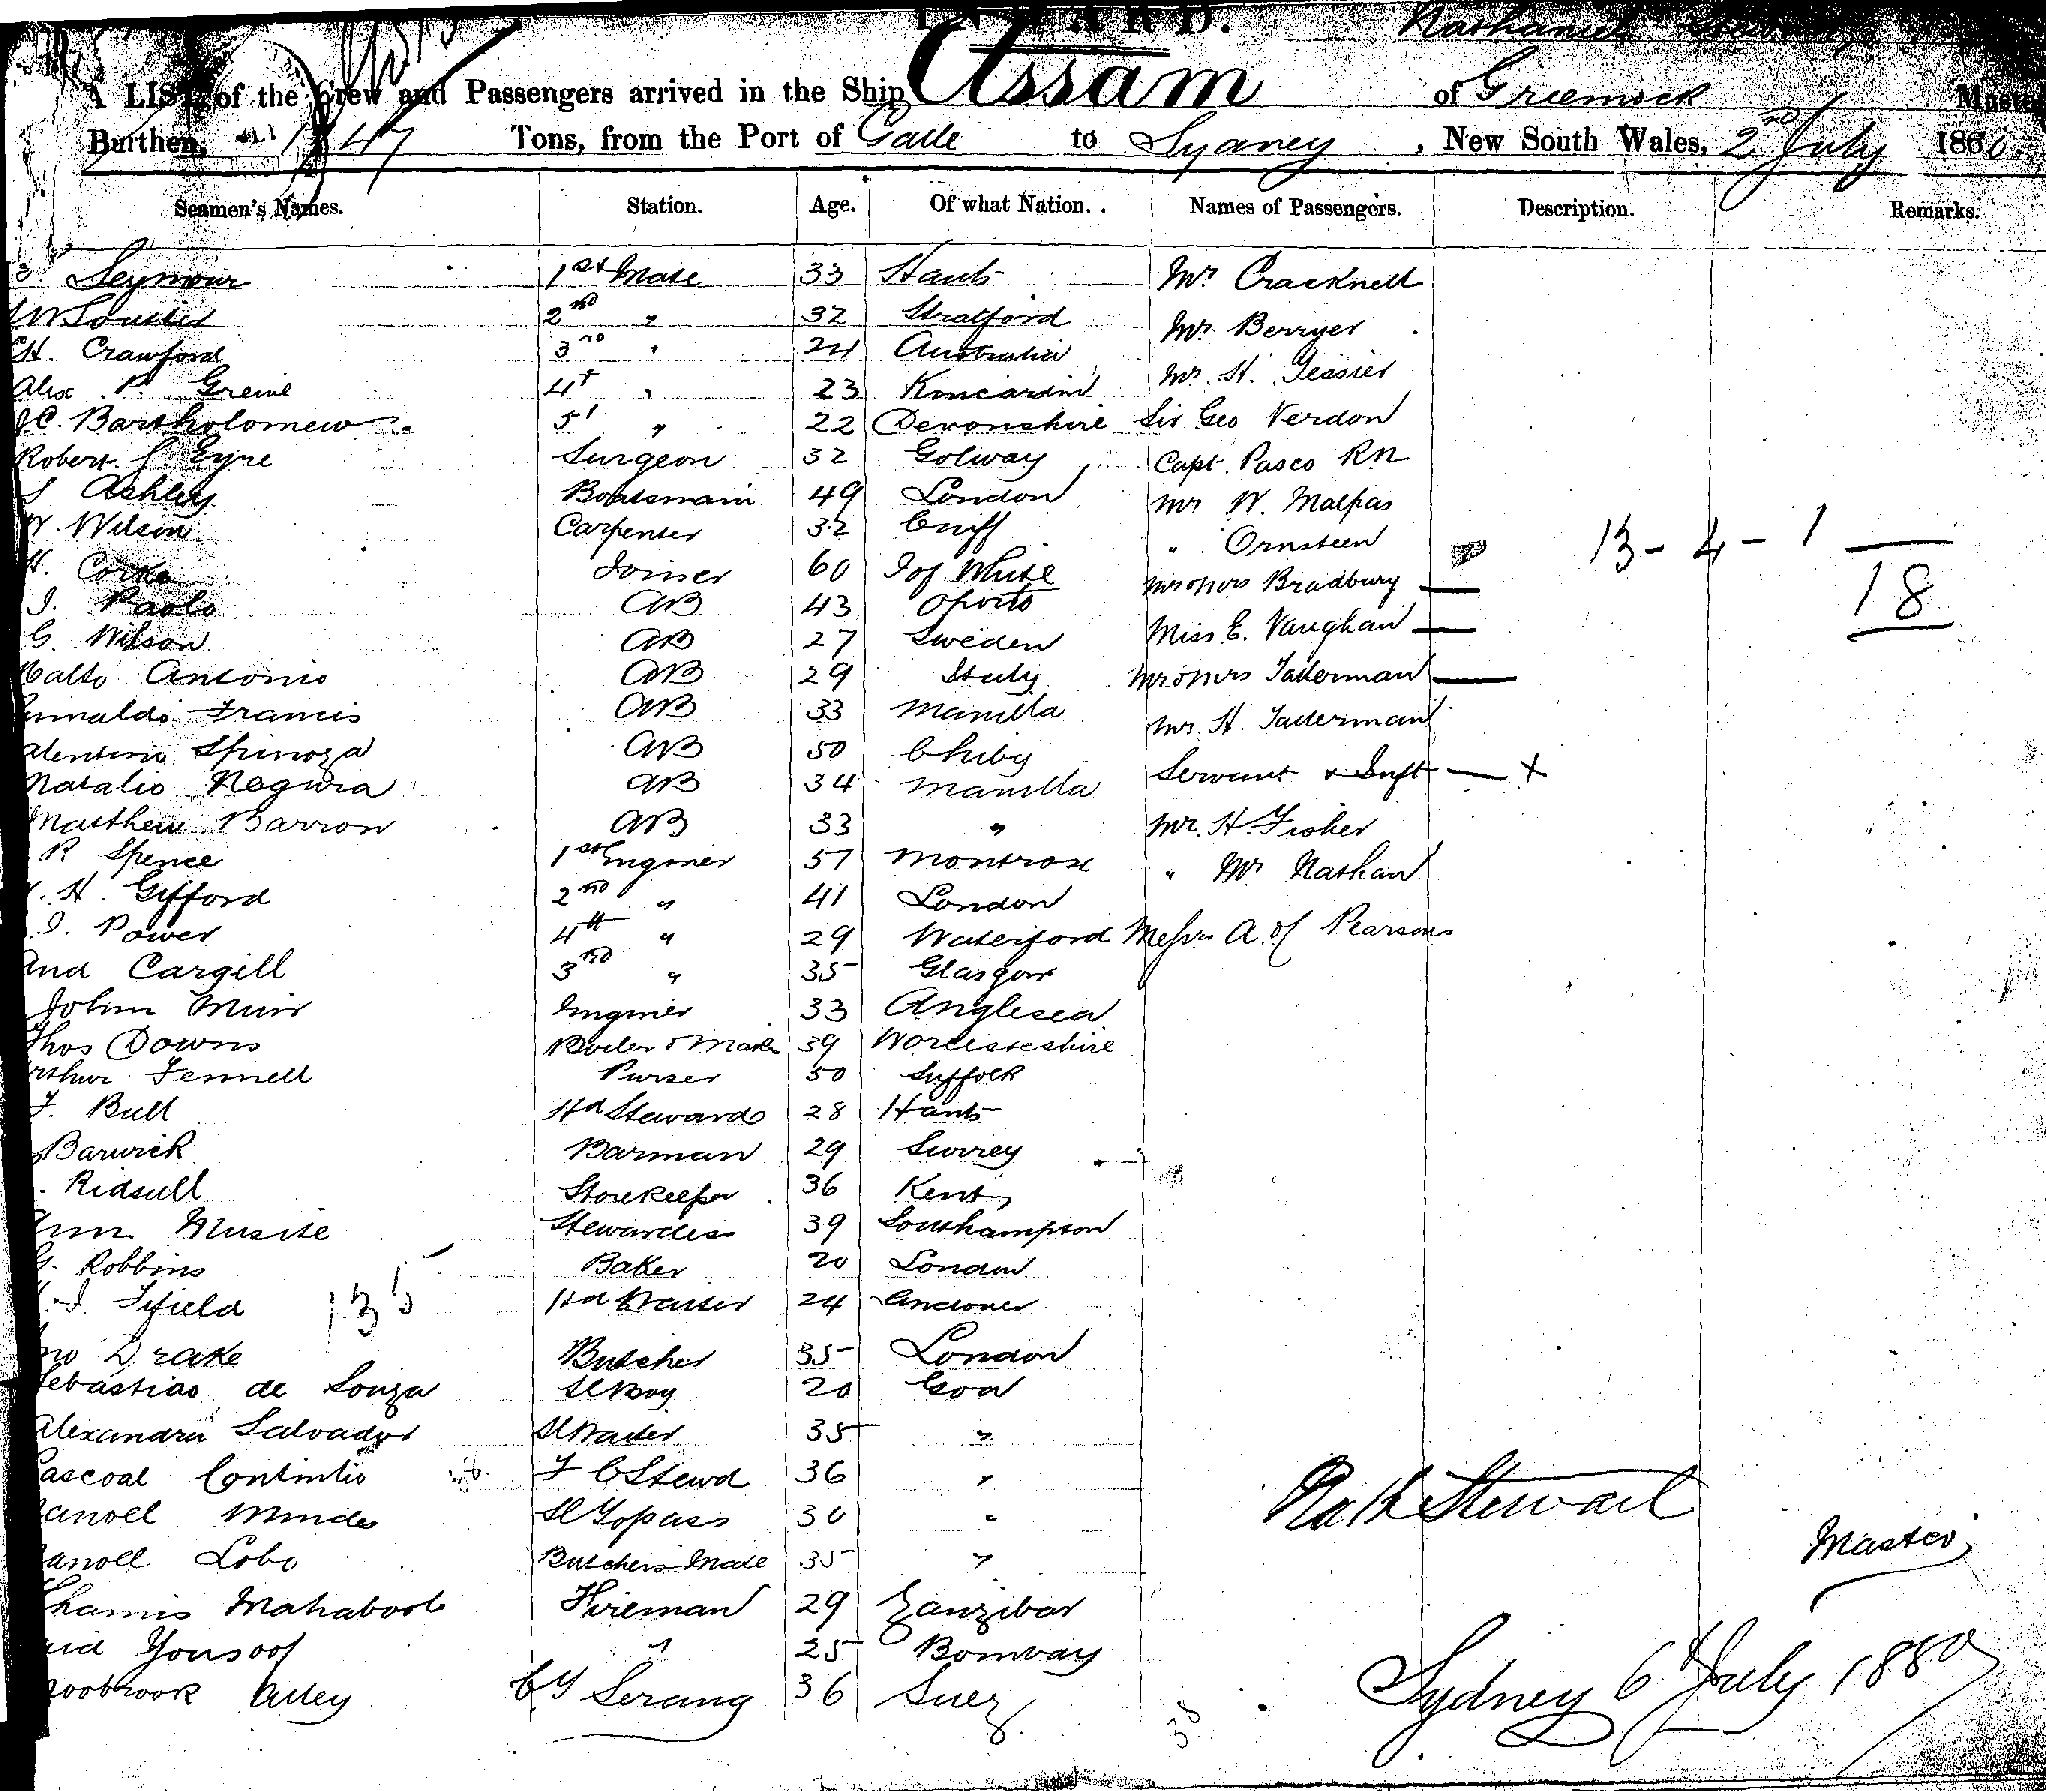 INWARD.
Nathaniel Stewart
A LIST of the Crew and Passengers arrived in the Ship Assam of Greenock Master
Burthen, 1847 Tons, from the Port of Galle to Sydney, New South Wales, 2nd July 1880
Seamen's Names. Station. Age. Of what Nation. Names of Passengers. Description. Remarks.
Seymour 1st Mate 33 Hants Mr Cracknell
2nd " 32 Stratford Mr Berryer
H. Crawford 3rd " 24 Australia Mr. H. Tessier
Alex P. Greive 4th " 23 Kincardin
J C. Bartholomew 5th " 22 Devonshire Sir Geo Verdon
Robert J Eyre Surgeon 32 Golway Capt. Pasco RN
Ashley Boatswain 49 London Mr W. Malpas
W. Wilson Carpenter 32 " Ornsteen
H. Corke Joiner 60 I of White Mr & Mrs Bradbury — 13 - 4 - 1 —
J. Paolo AB 43 Oporto 18
G. Wilson AB 27 Sweden Miss E. Vaughan —
Antonio AB 29 Italy Mr & Mrs Taderman —
Francis AB 33 Manilla Mr H. Taderman
Spinoza AB 50
Natalio Nogura AB 34 Manilla Servant & Inft — +
Matthew Barron AB 33 " Mr. H. Fisher
R Spence 1st Enginer 57 Montrose " Mr Nathan
H. Gifford 2nd " 41 London
J. Power 4th " 29 Waterford Messrs A. & J Pearsons
And Cargill 3rd " 35 Glasgow
John Muir Enginer 33 Anglesea
Thos Downs Boiler Maker 39 Worcesteshire
Arthur Fennell Purser 50 Suffolk
F. Bull Hd Steward 28 Hants
Barwick Barman 29 Surrey
Ridsull Storekeeper 36 Kent
Ann Musite Stewardess 39 Southampton
G. Robbins Baker 20 London
J. Fifield 135 Hd Waiter 24 Andover
Jno Drake Butcher 35 London
Sebastiao de Souza Sl Boy 20 Goa
Alexandra Salvador Sl Waiter 35 "
Pascoal F C Stewd 36 "
Manoel Mindes Sl Topass 30 "
Nath Stewart
Manoll Lobo Butchers Mate 35 "
Master
Khamis Mahaboob Fireman 29 Zanzibar
Said Yousoof " 25 Bomway
Moobrook Alley Cl Serang 36 Suez
Sydney 6th July 1880
38